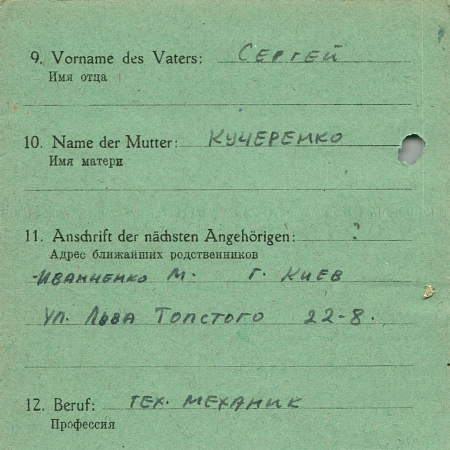 9. Vorname des Vaters: Сергей
Имя отца
10. Name der Mutter: Кучеренко
Имя матери
11. Anschrift der nächsten Angehörigen: ?
Адрес ближайших родственников
Иванченко М. г. Киев
ул. Льва Толстого 22-8.
12. Beruf: тех. механик
Профессия